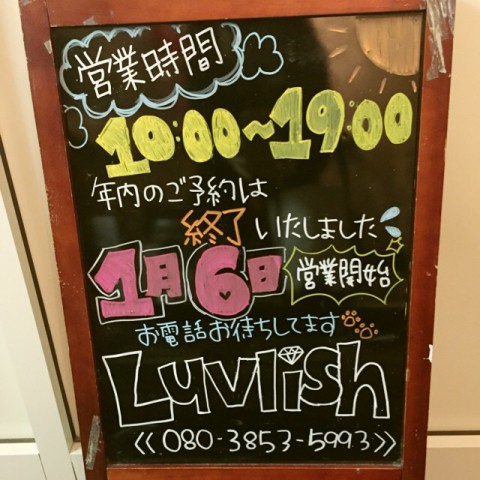 営業時間
10:00~19:00
年内のご予約は
終了いたしました
1月6日 営業開始
お電話お待ちしてます
Luvlish
《080-3853-5993》